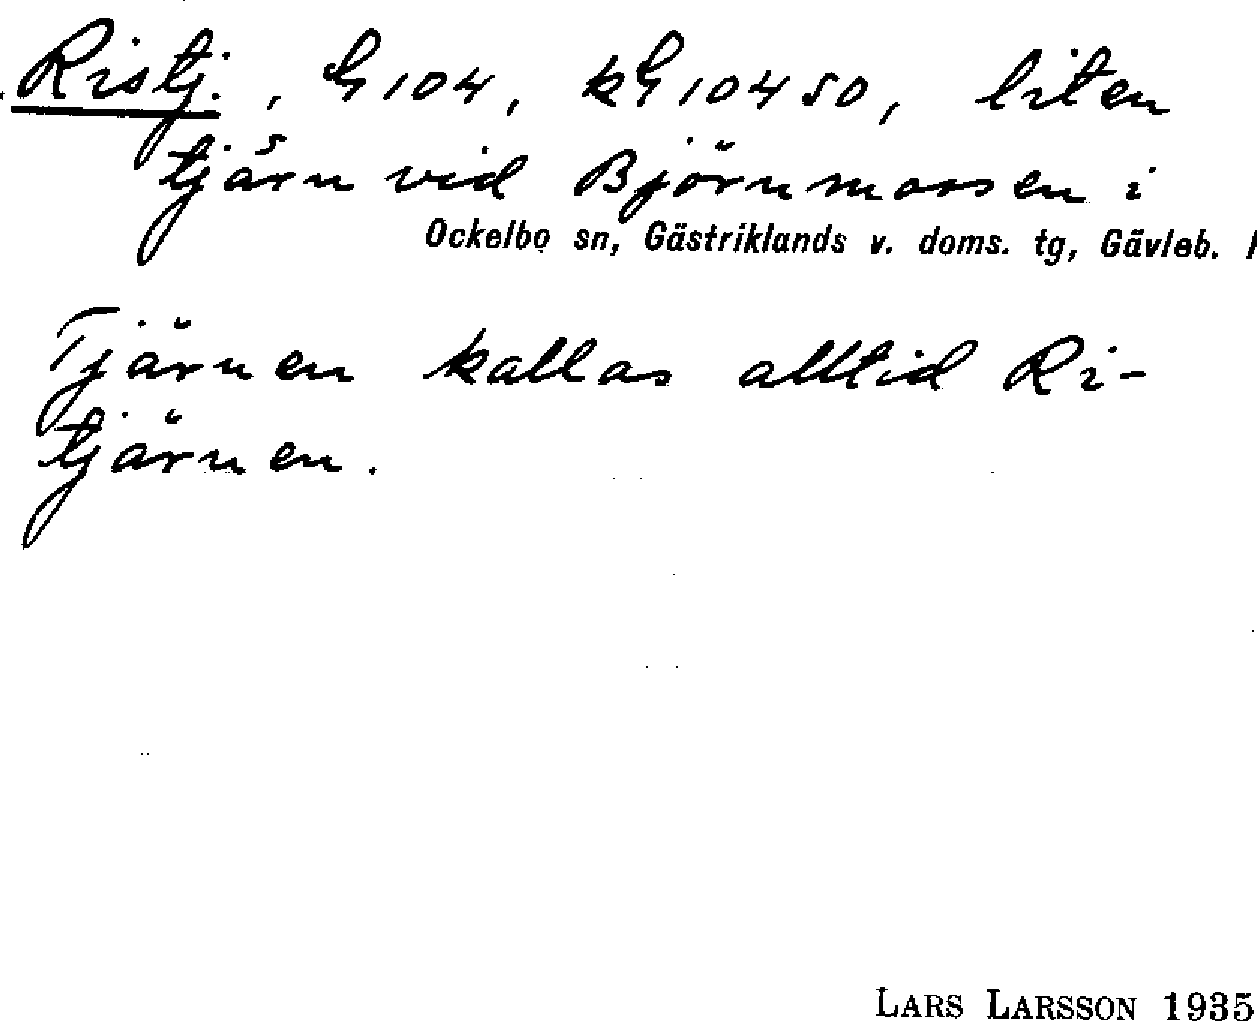 Ristj., G104, kG10450, liten
tjärn vid Björnmossen i
Ockelbo sn, Gästriklands v. doms. tg, Gävleb. l
Tjärnen kallas alltid Ri-
tjärnen.
LARS LARSSON 1935